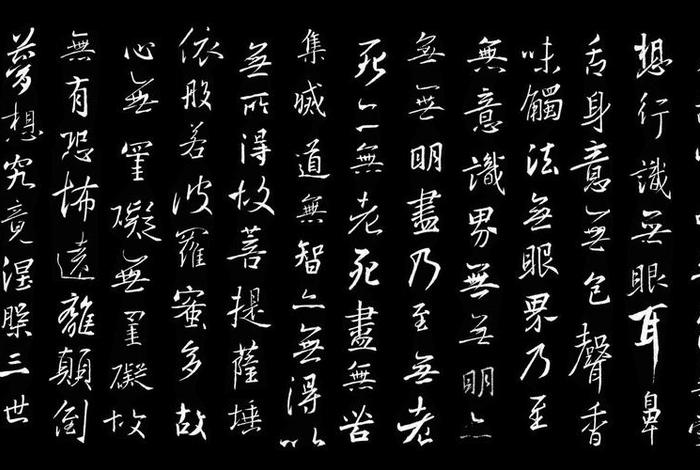 想行識無眼耳鼻
舌身意無色聲香
味觸法無眼界乃至
無意識界無無明亦
無無明盡乃至無老
死亦無老死盡無苦
集滅道無智亦無得以
無所得故菩提薩埵
依般若波羅蜜多故
心無罣礙無罣礙故
無有恐怖遠離顛倒
夢想究竟涅槃三世